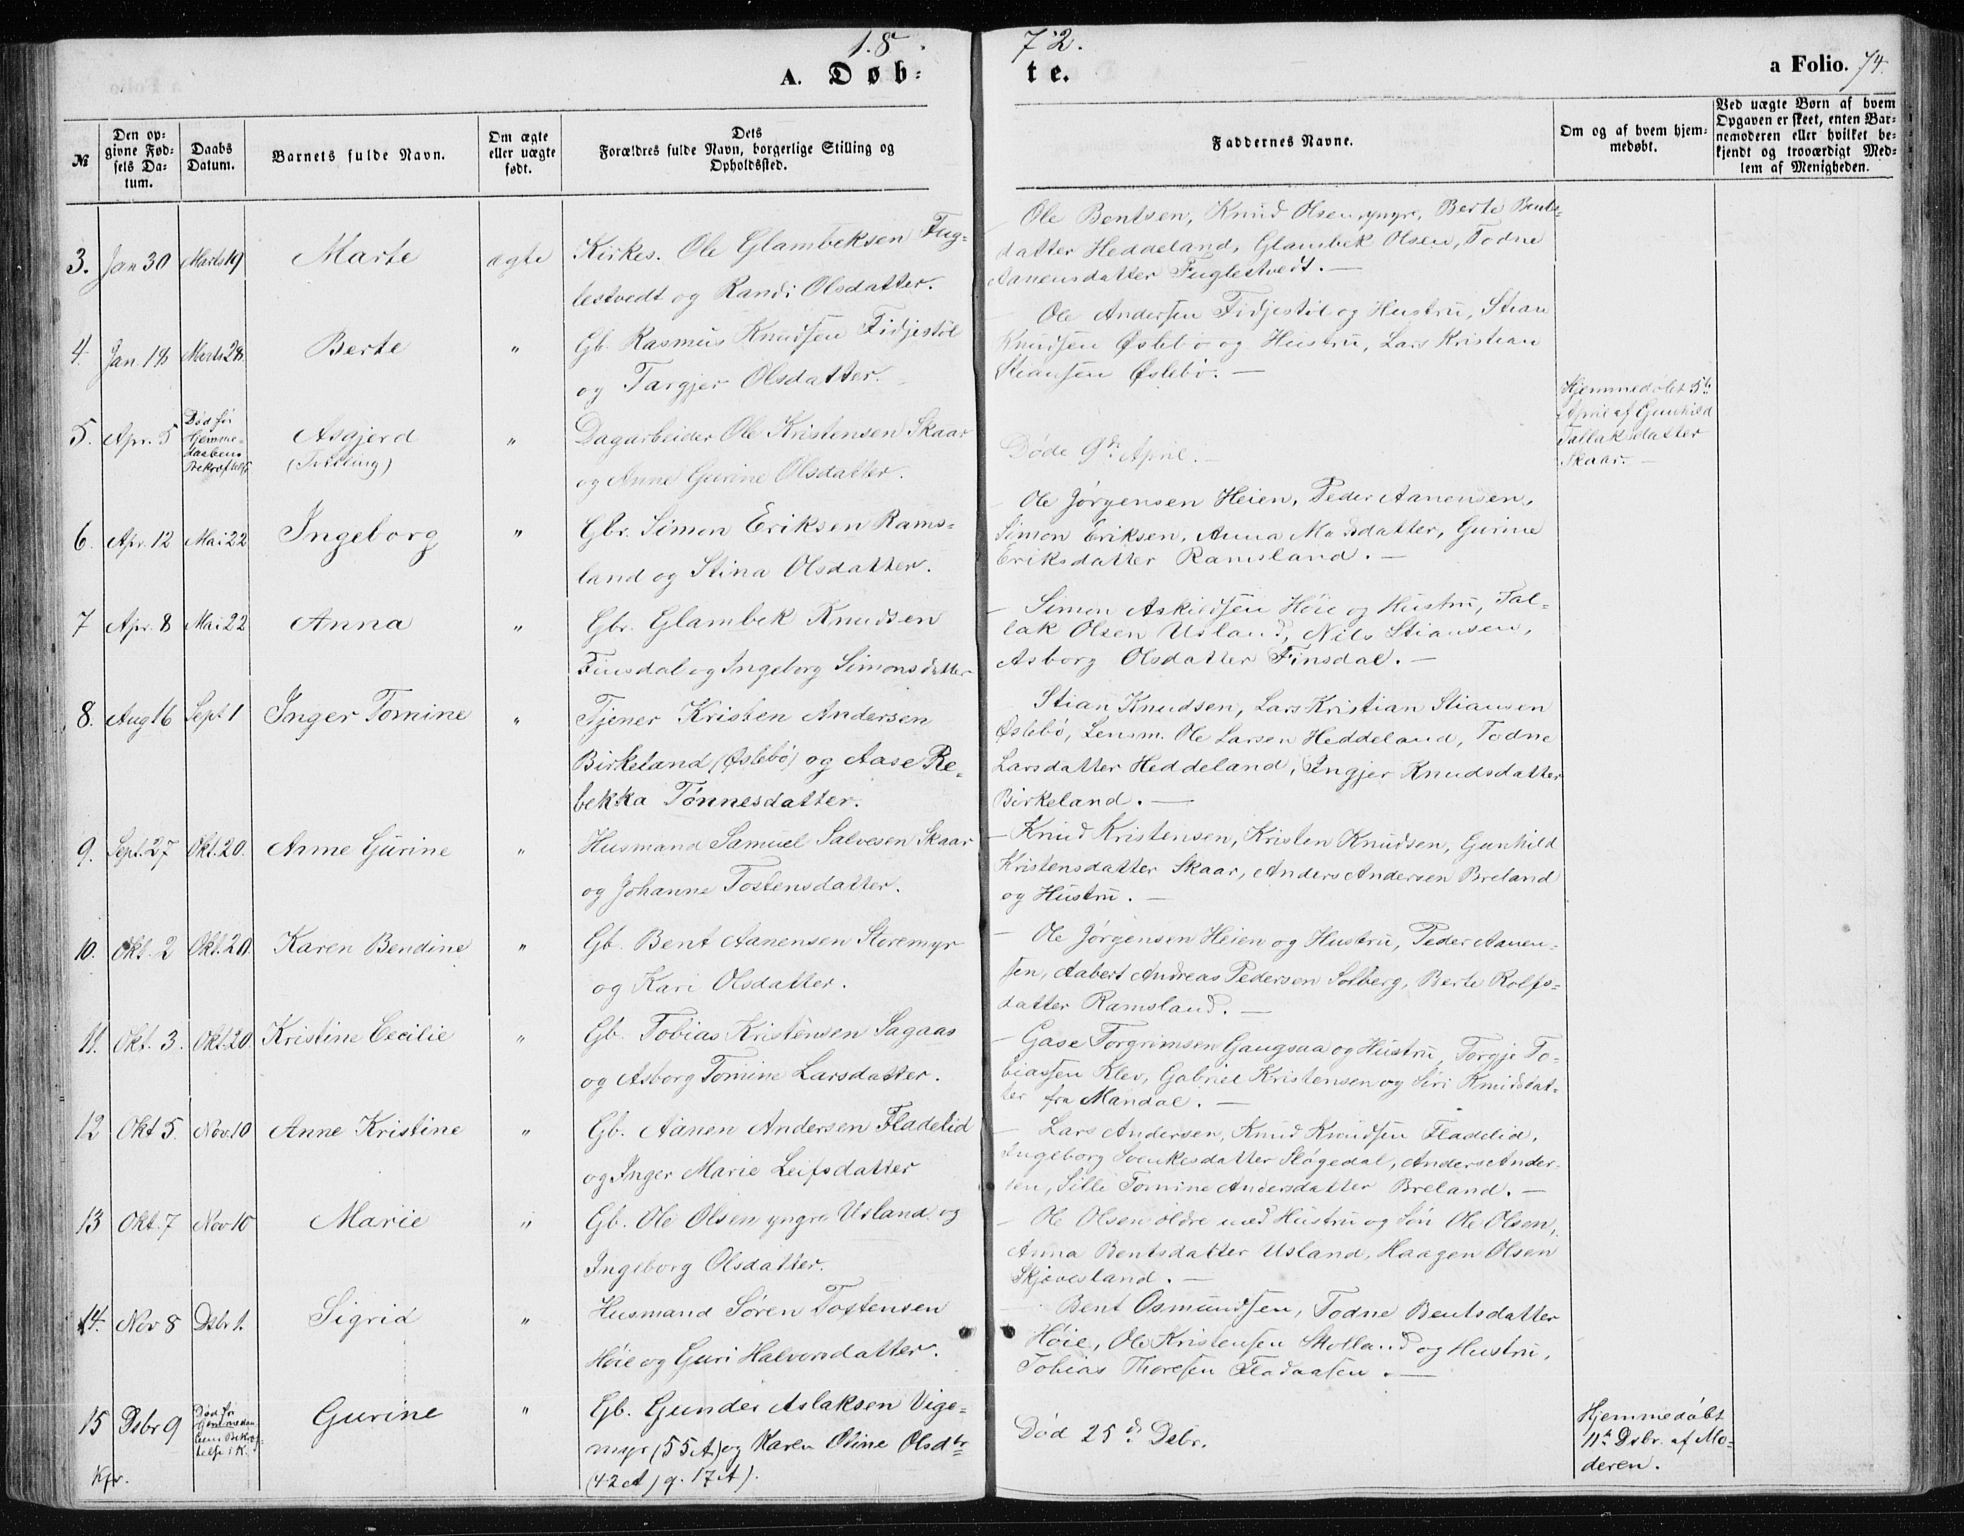 18
72.
A. Døb-
te.
a Folio. 74.
№
Den op-
givne Fød-
sels Da-
tum.
Daabs
Datum.
Barnets fulde Navn.
Om ægte
eller uægte
født.
Dets
Forældres fulde Navn, borgerlige Stilling og
Opholdssted.
Faddernes Navne.
Om og af hvem hjem-
medøbt.
Ved uægte Børn af hvem
Opgaven er skeet, enten Bar-
nemoderen eller hvilket be-
kjendt og troværdigt Med-
lem af Menigheden.
3. Jan 30 Marts 19 Marte ægte Kirkes. Ole Glambeksen Fug-
lestvedt og Randi Olsdatter.
Ole Bentsen, Knud Olsen yngre, Berte Bents-
datter Heddeland, Glambek Olsen, Todne
Aanensdatter Fuglestvedt. —
4. Jan 18 Marts 28. Berte " Gb. Rasmus Knudsen Fidjestøl
og Targjer Olsdatter.
— Ole Andersen Fidjestøl og Hustru, Stian
Knudsen Øslebø og Hustru, Lars Kristian
Stiansen Øslebø. —
5. Apr. 5 Død før
Hjemme-
daabens
Bekræftelse
Asgjerd
(Tvilling)
" Dagarbeider Ole Kristensen Skaar
og Anne Gurine Olsdatter.
Døde 9de April. —
Hjemmedøbt 5te
April af Gunhild
Tallaksdatter
Skaar. —
6. Apr. 12 Mai 22 Ingeborg " Gbr. Simon Eriksen Rams-
land og Stina Olsdatter.
— Ole Jörgensen Heien, Peder Aanensen,
Simon Eriksen, Anna Madsdatter, Gurine
Eriksdatter Ramsland. —
7 Apr. 8 Mai 22 Anna " Gbr. Glambek Knudsen
Finsdal og Ingeborg Simonsdatter
— Simon Askildsen Høie og Hustru, Tal-
lak Olsen Usland, Nils Stiansen,
Asborg Olsdatter Finsdal. —
8. Aug 16 Sept 1 Inger Tomine " Tjener Kristen Andersen
Birkeland (Øslebø) og Aase Re-
bekka Tönnesdatter.
Stian Knudsen, Lars Kristian Stiansen
Øslebø, Lensm. Ole Larsen Heddeland, Todne
Larsdatter Heddeland, Ingjer Knudsdatter
Birkeland. —
9. Sept. 27 Okt. 20. Anne Gurine " Husmand Samuel Salvesen Skaar
og Johanne Tostensdatter.
— Knud Kristensen, Kristen Knudsen, Gunhild
Kristensdatter Skaar, Anders Andersen Breland
og Hustru. —
10. Okt. 2 Okt. 20. Karen Bendine " Gb. Bent Aanensen Storemyr
og Kari Olsdatter.
— Ole Jørgensen Heien og Hustru, Peder Aanen-
sen, Aabert Andreas Pedersen Solberg, Berte Rolfs-
datter Ramsland. —
11. Okt. 3. Okt. 20 Kristine Cecilie " Gb. Tobias Kristensen Sagaas
og Asborg Tomine Larsdatter.
— Gase Torgrimsen Gaugsaa og Hustru, Torgje To-
biassen Klev, Gabriel Kristensen og Siri Knudsdat-
ter fra Mandal. —
12 Okt 5. Nov. 10 Anne Kristine " Gb. Aanen Andersen Fladelid
og Inger Marie Leifsdatter
— Lars Andersen, Knud Knudsen Fladelid,
Ingeborg Svenkesdatter Sløgedal, Anders Ander-
sen, Sille Tomine Andersdatter Breland. —
13 Okt. 7 Nov 10 Marie " Gb. Ole Olsen yngre Usland og
Ingeborg Olsdatter.
— Ole Olsen ældre med Hustru og Søn Ole Olsen,
Anna Bentsdatter Usland, Haagen Olsen
Skjævesland. —
14. Nov 8 Dsbr 1. Sigrid " Husmand Sören Tostensen
Høie og Guri Halvorsdatter.
Bent Osmundsen, Todne Bentsdatter
Høie, Ole Kristensen Skotland og Hustru,
Tobias Thoresen Fladaasen. —
15 Dsbr 9 Død før
Hjemmedaa-
bens Bekræf-
telse i K.
Gurine " Gb. Gunder Aslaksen Vige-
myr (55 A) og Karen Oline Olsdtr
(42 A) g. 17 A).
Død 25de Dsbr.
Hjemmedøbt
11te Dsbr. af Mo-
deren.
Kfr.